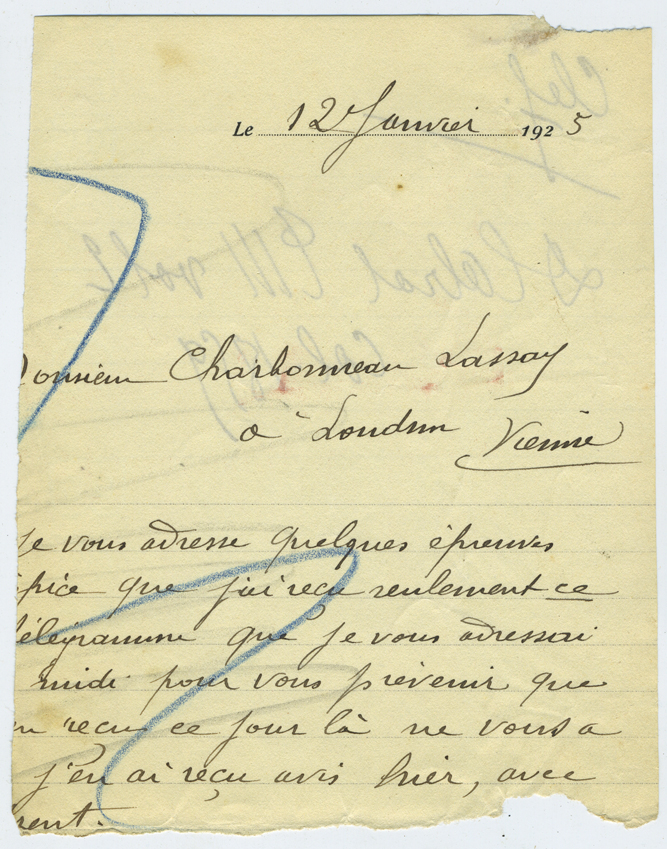 Le 12 Janvier 1925
onsieur Charbonneau Lassay
à Loudun Vienne
Je vous adresse quelques épreuves
que j'ai recu seulement ce
élégramme que je vous adressai
midi pour vous prévenir que
recu ce jour là ne vous a
j'en ai reçu avis hier, avec